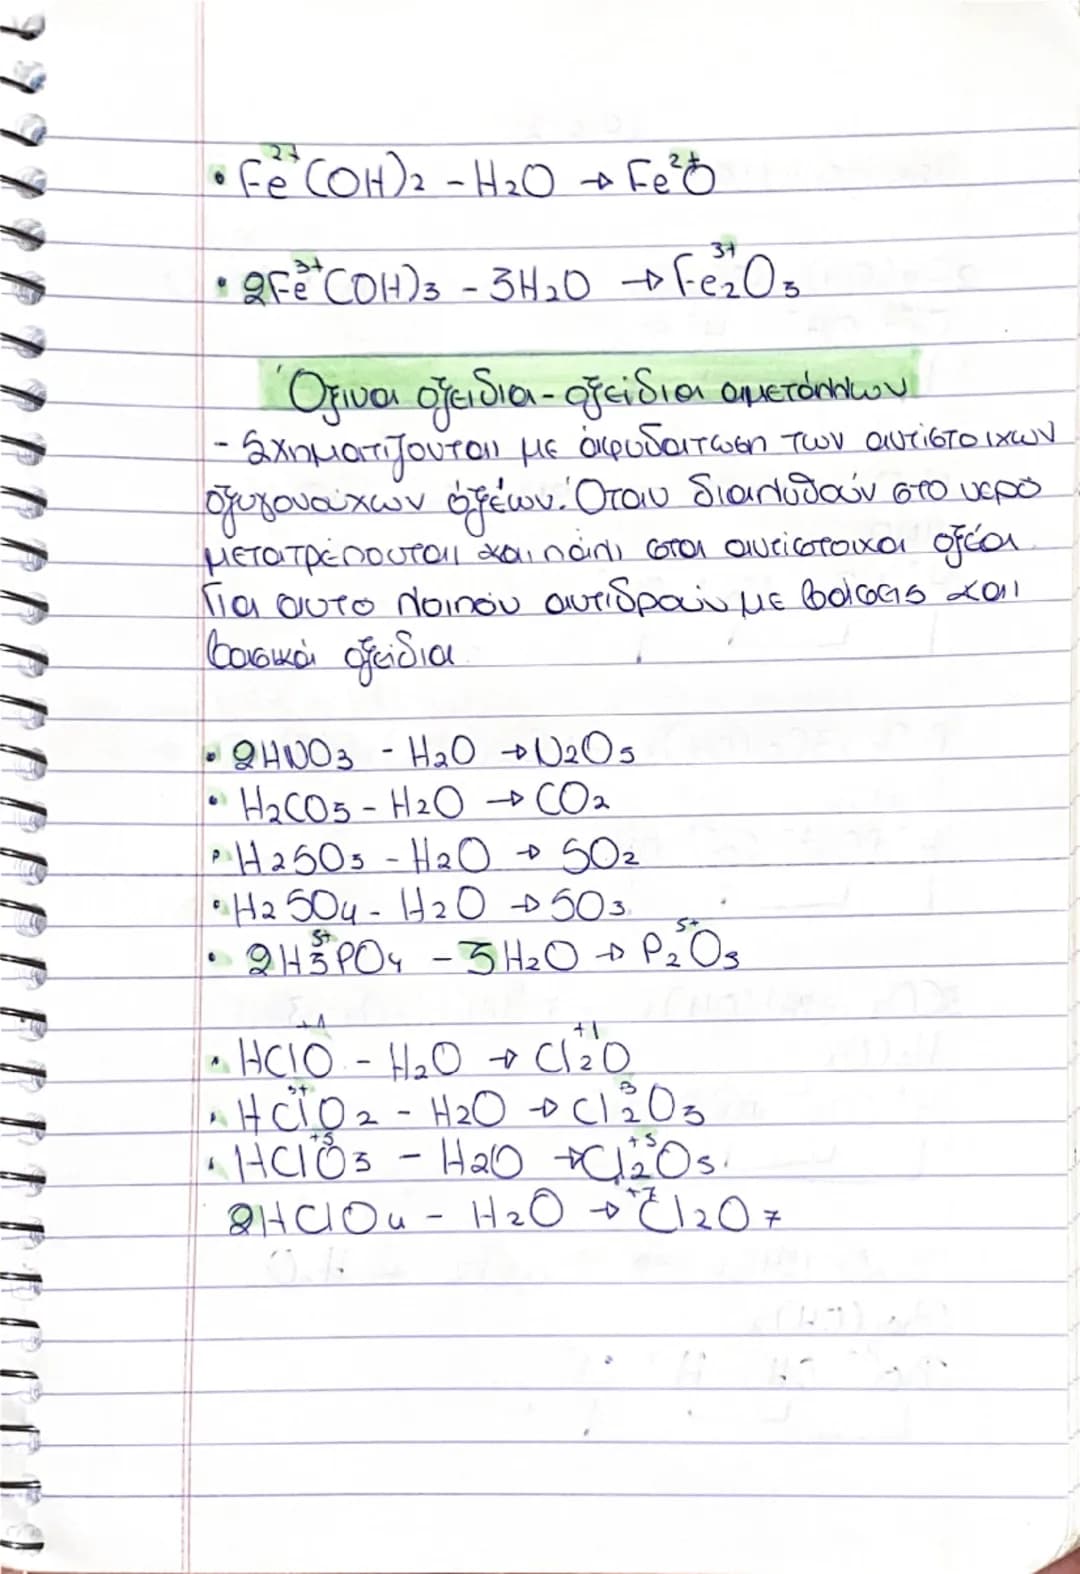 • Fe²⁺(OH)₂ - H₂O → Fe²⁺O
• 2Fe³⁺(OH)₃ - 3H₂O → Fe³⁺₂O₃
Όξινα οξείδια - οξείδια αμετάλλων
- Σχηματίζονται με αφυδάτωση των αντίστοιχων
οξυγονούχων οξέων. Όταν διαλυθούν στο νερό
μετατρέπονται και πάλι στα αντίστοιχα οξέα
Για αυτο λοιπόν αντιδρούν με βάσεις και
βασικά οξείδια
• 2HNO₃ - H₂O → N₂O₅
• H₂CO₃ - H₂O → CO₂
• H₂SO₃ - H₂O → SO₂
• H₂SO₄ - H₂O → SO₃
• 2H₃P⁵⁺O₄ - 3H₂O → P⁵⁺₂O₅
• HCl⁺¹O - H₂O → Cl⁺¹₂O
• HCl³⁺O₂ - H₂O → Cl³₂O₃
• HCl⁺⁵O₃ - H₂O → Cl⁺⁵₂O₅.
2HClO₄ - H₂O → ⁺⁷Cl₂O₇